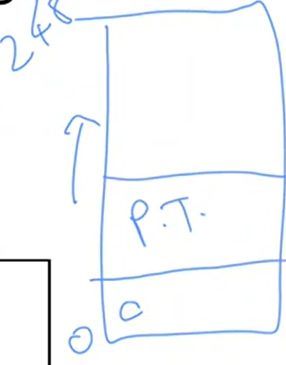 248
P.T.
C
0